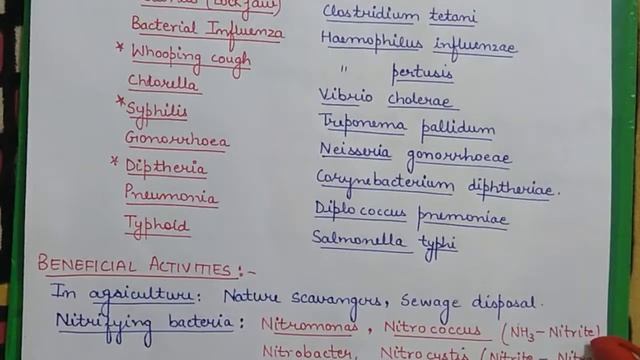 (Lockjaw) Clostridium tetani
Bacterial Influenza Haemophilus influenzae
* Whooping cough " pertusis
Chlorella Vibrio cholerae
* Syphilis Treponema pallidum
Gonorrhoea Neisseria gonorrhoeae
* Diptheria Corynebacterium diphtheriae.
Pneumonia Diplococcus pnemoniae
Typhoid Salmonella typhi
BENEFICIAL ACTIVITIES :-
In agriculture: Nature scavangers, Sewage disposal.
Nitrifying bacteria: Nitromonas, Nitrococcus (NH3 - Nitrite)
Nitrobacter, Nitrocystis (Nitrite -